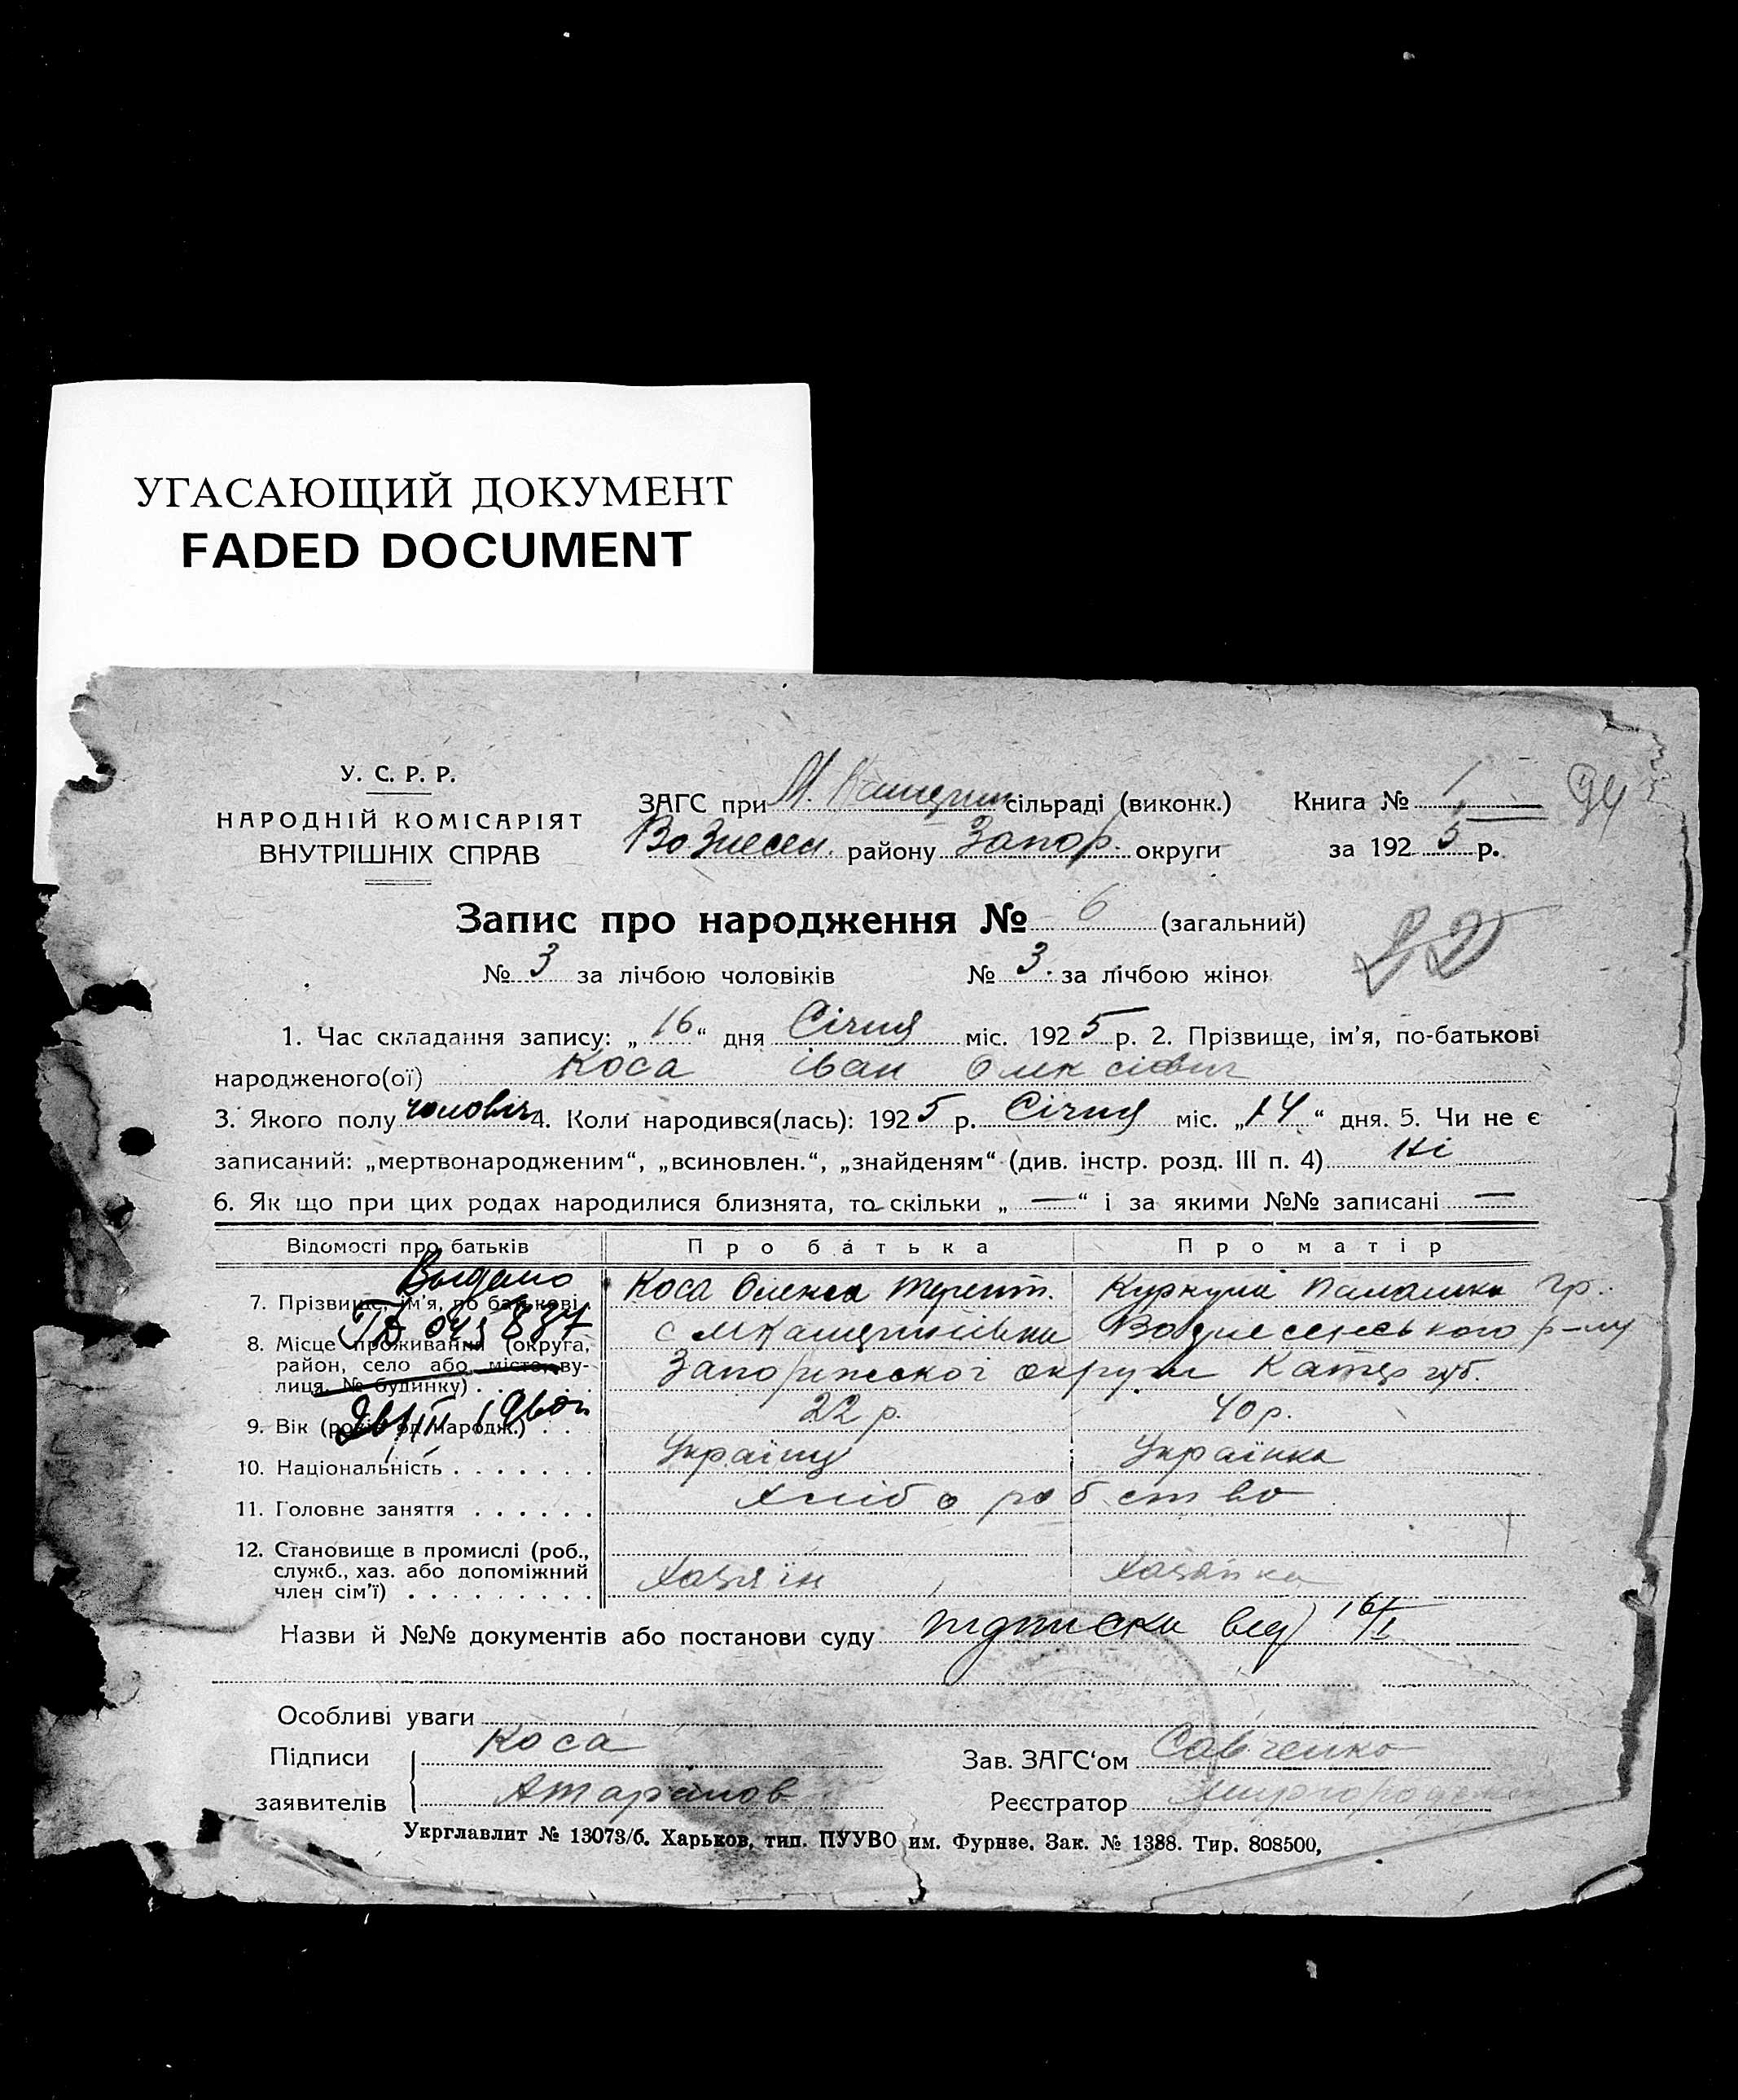 УГАСАЮЩИЙ ДОКУМЕНТ
FADED DOCUMENT
У. С. Р. Р.
НАРОДНІЙ КОМІСАРІЯТ
ВНУТРІШНІХ СПРАВ
ЗАГС при М. Катерин сільраді (виконк.)
Вознесен. району Запор. округи
Книга № 1
94
за 1925 р.
Запис про народження № 6 (загальний)
№ 3 за лічбою чоловіків № 3. за лічбою жінок
1. Час складання запису: „16“ дня Січня міс. 1925 р. 2. Прізвище, ім’я, по-батькові
народженого(ої) Коса Іван Олексіевич
3. Якого полу чоловіч 4. Коли народився(лась): 1925 р. Січня міс. „14“ дня. 5. Чи не є
записаний: „мертвонародженим“, „всиновлен.“, „знайденям“ (див. інстр. розд. III п. 4) Ні
6. Як що при цих родах народилися близнята, то скільки „—“ і за якими №№ записані —
Відомості про батьків Про батька Про матір
Выдано
7. Прізвище, ім’я, по батькові . Коса Олекса Терент. Куркуна Палашка Гр.
8. Місце проживання (округа,
район, село або місто, ву-
лиця, № будинку) . . . . . .
Вознесенського р-ну
Запоріжської округи Катер губ.
9. Вік (років од народж.) . . 22 р. 40 р.
10. Національність . . . . . . . Українц Українка
11. Головне заняття . . . . . . Хліборобство
12. Становище в промислі (роб.,
служб., хаз. або допоміжний
член сім’ї) . . . . . . . . . Хазяїн Хазяйка
Назви й №№ документів або постанови суду підписки від 16/I
Особливі уваги
Підписи Коса
заявителів
Зав. ЗАГС‘ом Савченко
Реєстратор
Укрглавлит № 13073/б. Харьков, тип. ПУУВО им. Фурнзе. Зак. № 1388. Тир. 808500,